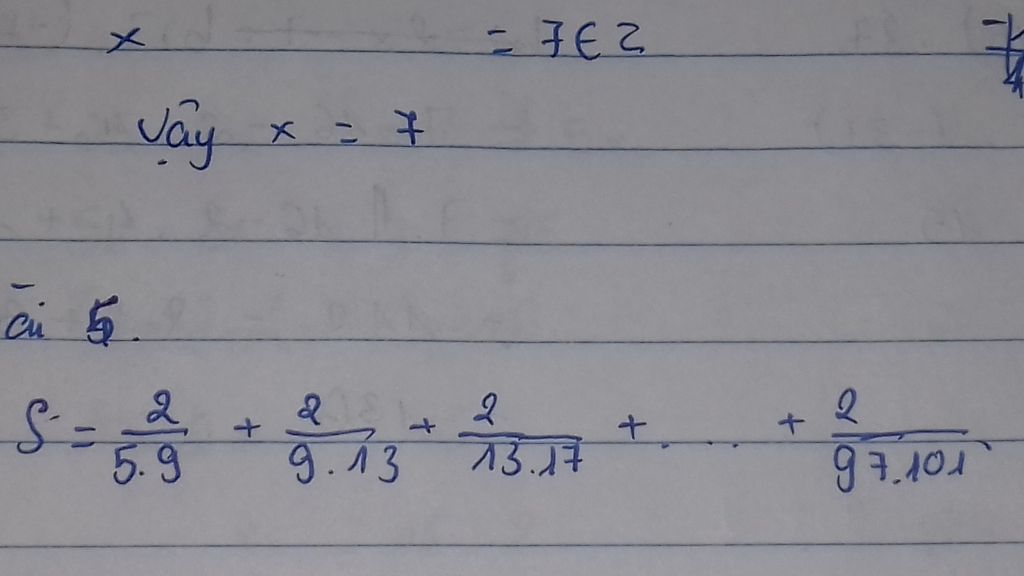 x = 7 ∈ Z
Vậy x = 7
ài 5.
S = 2/5.9 + 2/9.13 + 2/13.17 + .... + 2/97.101